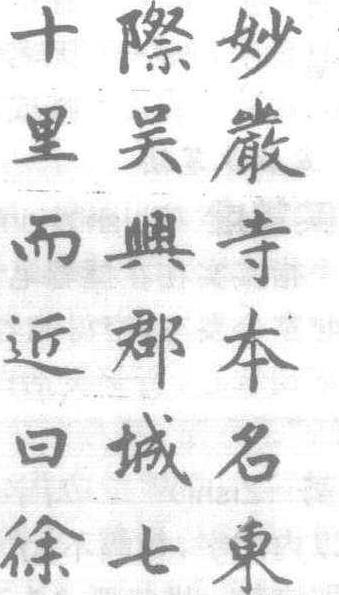 妙嚴寺本名東
際吴興郡城七
十里而近曰徐